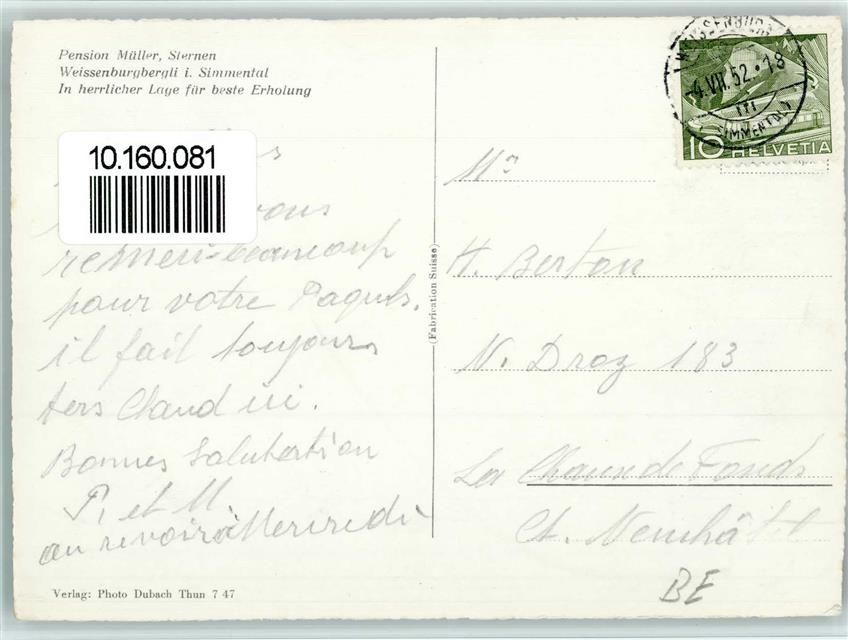 Pension Müller, Sternen
Weissenburgbergli i. Simmental
In herrlicher Lage für beste Erholung
10.160.081
vous
remerci beaucoup
pour votre Paquets.
il fait toujours
ters Chaud ici.
Bonnes Salutation
P, et M.
au revoir à Mercredi
Verlag: Photo Dubach Thun 7 47
(Fabrication Suisse)
WEISSENBURG
4.VII.52.18
(SIMMENTAL)
10 HELVETIA
Mr
H. Berton
N. Droz 183
La Chaux de Fonds
Ct. Neuchâtel
BE